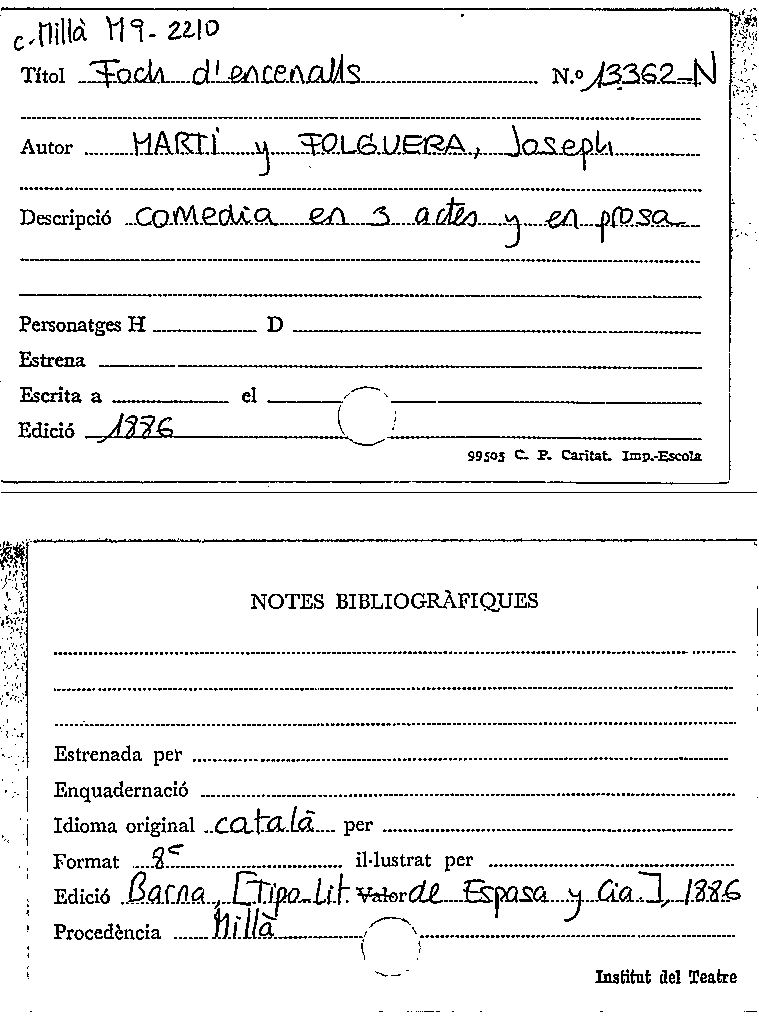 c. Millà M9-2210
Títol Foch d'encenalls N.º 13362-N
Autor MARTÍ y FOLGUERA, Joseph
Descripció comedia en 3 actes y en prosa
Personatges H D
Estrena
Escrita a el
Edició 1886
99505 C. P. Caritat. Imp.-Escola
NOTES BIBLIOGRÀFIQUES
Estrenada per
Enquadernació
Idioma original català per
Format 8º il·lustrat per
Edició Barna, [Tipo-Lit. Valor de Espasa y Cia.], 1886
Procedència Millà
Institut del Teatre